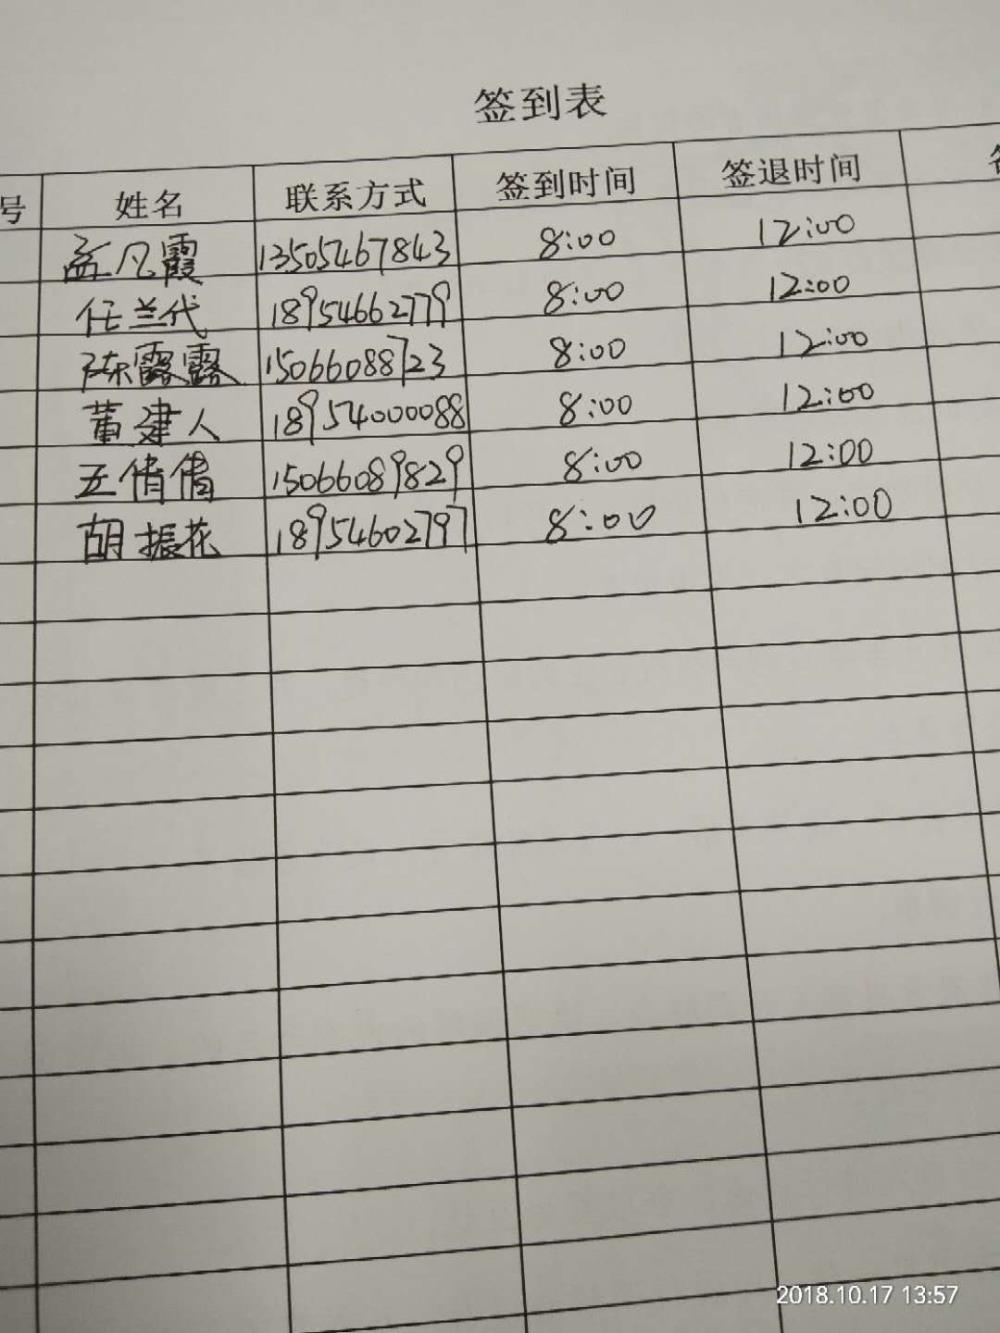 签到表
号 姓名 联系方式 签到时间 签退时间
孟凡霞 13505467843 8:00 12:00
任兰代 18954662779 8:00 12:00
陈露露 15066088723 8:00 12:00
董建人 18954000088 8:00 12:00
王倩倩 15066089829 8:00 12:00
胡振花 18954602797 8:00 12:00
2018.10.17 13:57